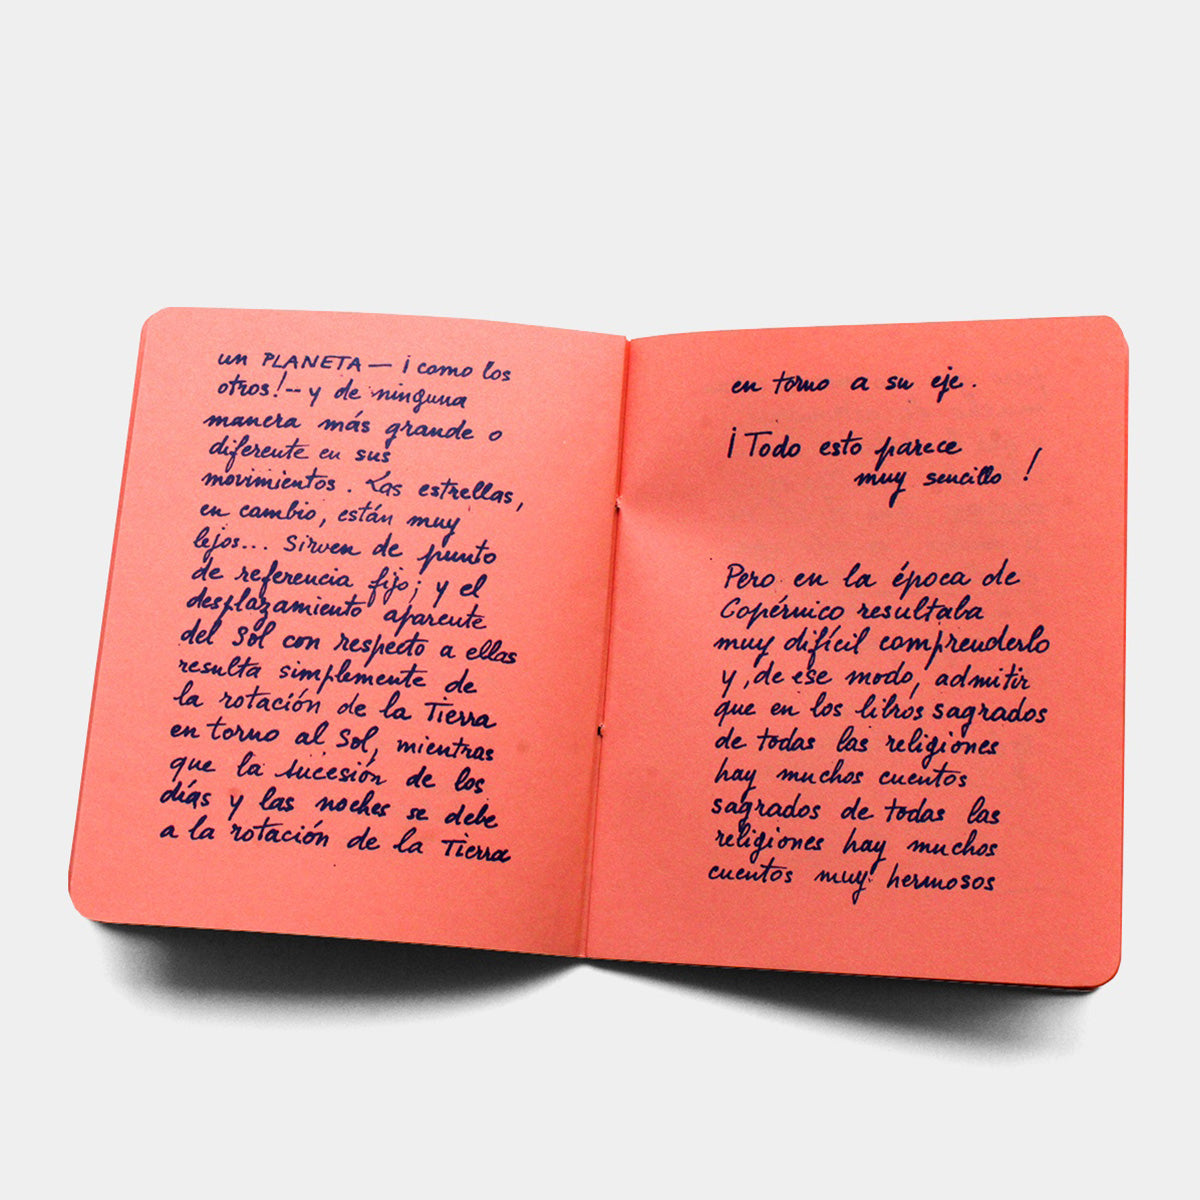 un PLANETA — ¡como los
otros! -- y de ninguna
manera más grande o
diferente en sus
movimientos. Las estrellas,
en cambio, están muy
lejos... Sirven de punto
de referencia fijo; y el
desplazamiento aparente
del Sol con respecto a ellas
resulta simplemente de
la rotación de la Tierra
en torno al Sol, mientras
que la sucesión de los
días y las noches se debe
a la rotación de la Tierra
en torno a su eje.
¡Todo esto parece
muy sencillo!
Pero en la época de
Copérnico resultaba
muy difícil comprenderlo
y, de ese modo, admitir
que en los libros sagrados
de todas las religiones
hay muchos cuentos
sagrados de todas las
religiones hay muchos
cuentos muy hermosos